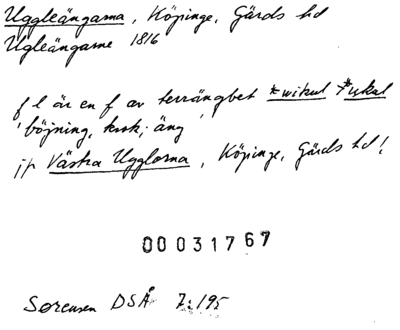 Uggleängarna, Köpinge, Gärds hd
Ugleängarne 1816
f l är en f av terrängbet *wikul *ukul
'böjning, krok; äng'
jfr Västra Ugglorna, Köpinge, Gärds hd!
00031767
Sørensen DSÅ 7:195